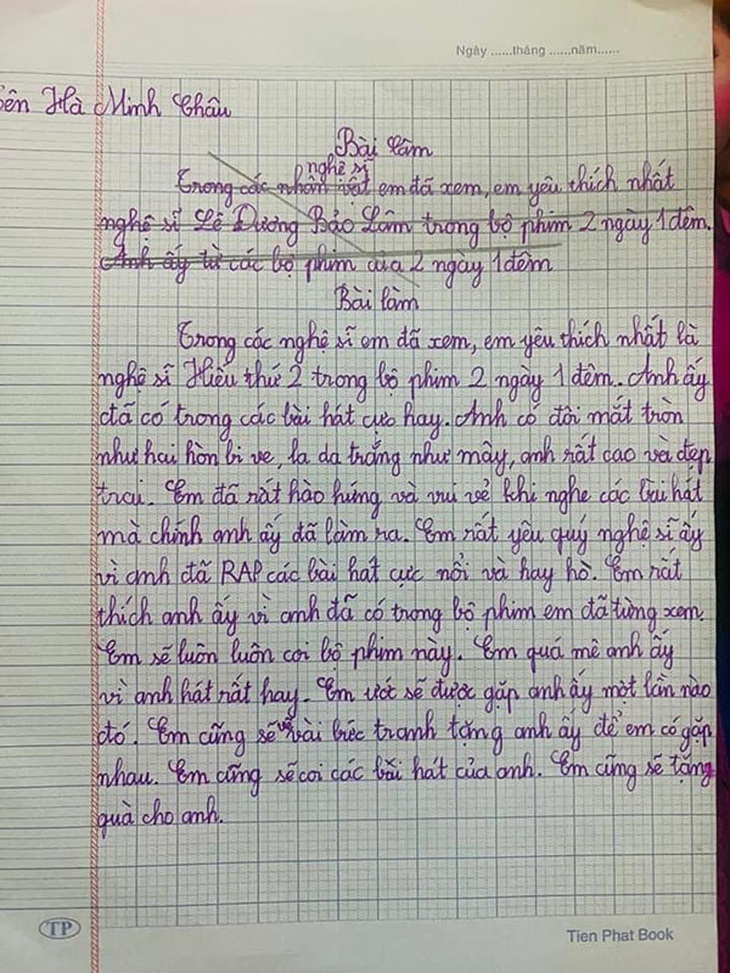 Ngày ......tháng ......năm......
ên Hà Minh Châu
Bài làm
nghệ sĩ
Trong các nhân vật em đã xem, em yêu thích nhất
nghệ sĩ Lê Dương Bảo Lâm trong bộ phim 2 ngày 1 đêm.
Anh ấy từ các bộ phim của 2 ngày 1 đêm
Bài làm
Trong các nghệ sĩ em đã xem, em yêu thích nhất là
nghệ sĩ Hiếu thứ 2 trong bộ phim 2 ngày 1 đêm. Anh ấy
đã có trong các bài hát cực hay. Anh có đôi mắt tròn
như hai hòn bi ve, la da trắng như mây, anh rất cao và đẹp
trai. Em đã rất hào hứng và vui vẻ khi nghe các bài hát
mà chính anh ấy đã làm ra. Em rất yêu quý nghệ sĩ ấy
vì anh đã RAP các bài hat cực nổi và hay hò. Em rất
thích anh ấy vì anh đã có trong bộ phim em đã từng xem.
Em sẽ luôn luôn coi bộ phim này. Em quá mê anh ấy
vì anh hát rất hay. Em ước sẽ được gặp anh ấy một lần nào
đó. Em cũng sẽ vẽ vài bức tranh tặng anh ấy để em có gặp
nhau. Em cũng sẽ coi các bài hát của anh. Em cũng sẽ tặng
quà cho anh.
TP
Tien Phat Book